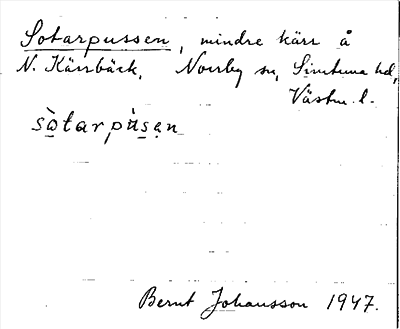 Sotarpussen, mindre kärr å
N. Kärrbäck, Norrby sn, Simtuna hd,
Västm. l.
sòtarpùsen
Bernt Johansson 1947.